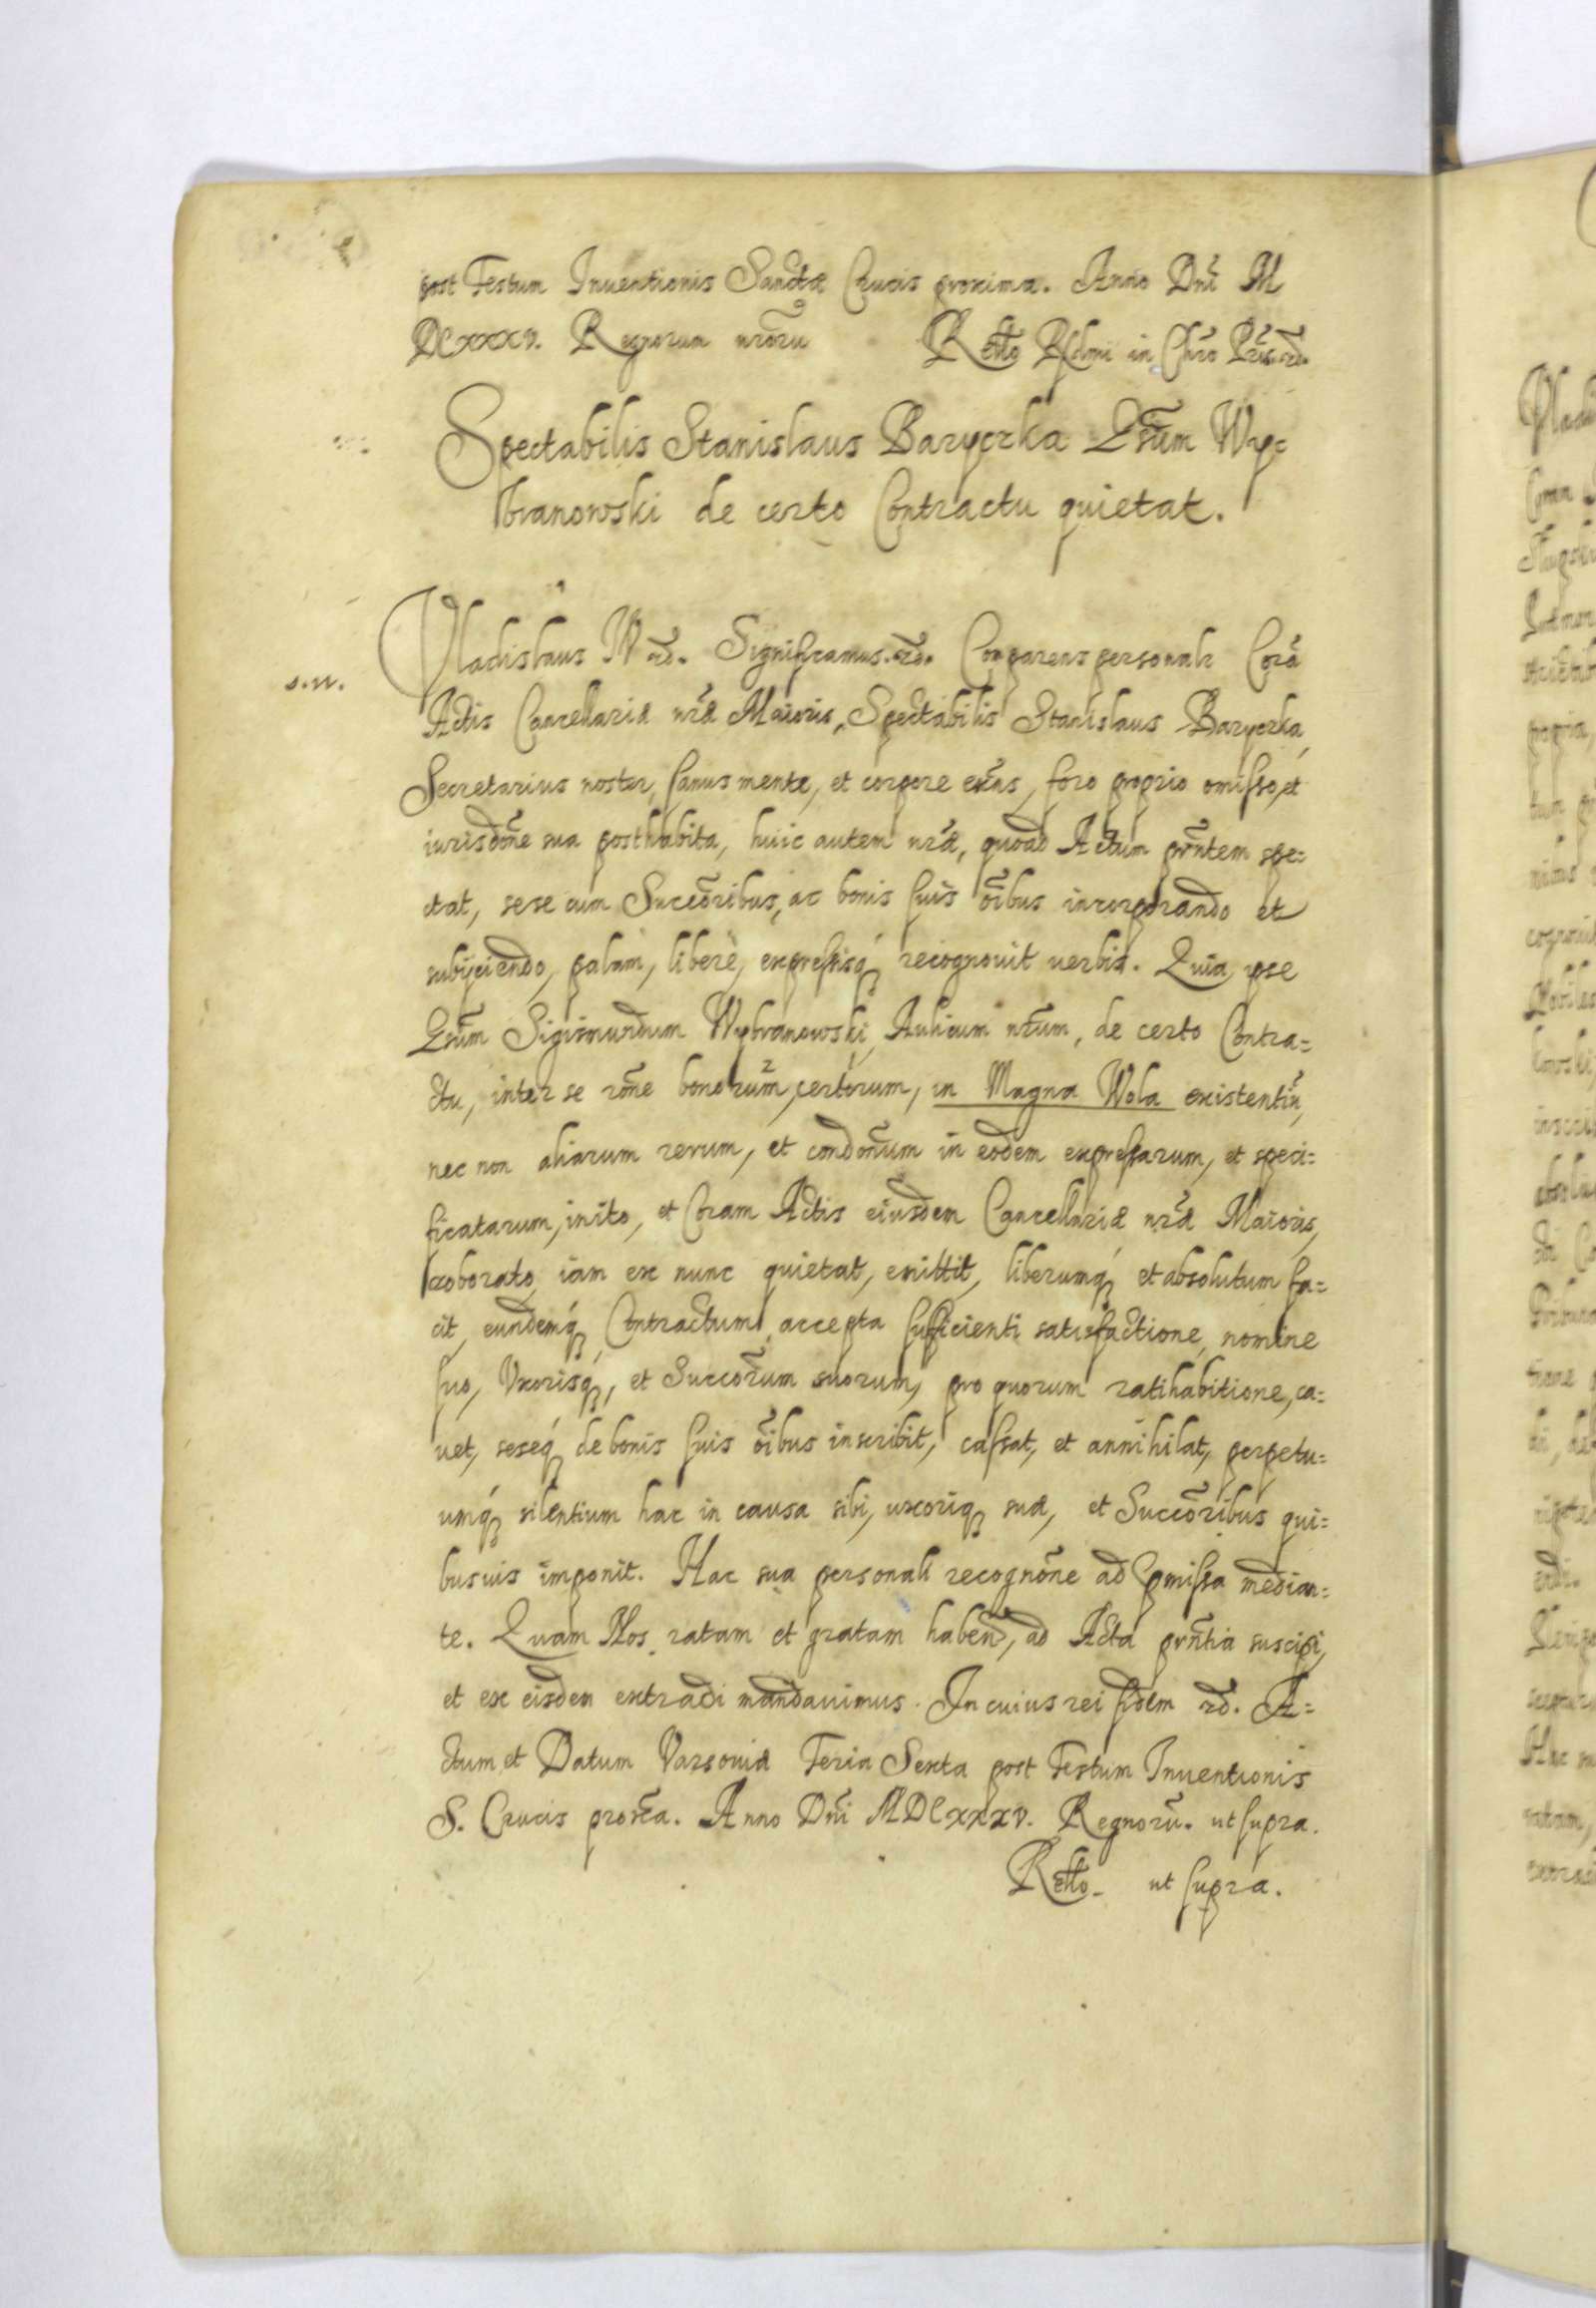 post Festum Inuentionis Sanctæ Crucis proxima. Anno Dñi M
DCXXXV. Regnorum nr̃orũ Rel̃lo Rssmi in Chr̃o Pr̃is. rẽ.
Spectabilis Stanislaus Baryczka Grũm Wy=
branowski de certo Contractu quietat.
Vladislaus IV rẽ. Significamus. rẽ. Comparens personalr Corã
s.n.
Actis Cancellariæ nr̃æ Maioris, Spectabilis Stanislaus Baryczka,
Secretarius noster, sanus mente, et corpore exñs, foro proprio omisso, et
iurisdõne sua posthabita, huic autem nr̃æ, quoad Actum prñtem spe=
ctat, sese cum Succõribus, ac bonis suis õibus incorporando et
subijciendo, palam, liberè, expressisq́ recognouit verbis. Quia ipse
Grũm Sigismundum Wybranowski, Aulicum nr̃um, de certo Contra=
ctu, inter se rõne bonorum, certorum, in Magna Wola existentiũ,
nec non aliarum rerum, et condõnum in eodem expressarum, et speci=
ficatarum, inito, et Coram Actis eiusdem Cancellariæ nr̃æ Maioris,
roborato, iam ex nunc quietat, emittit, liberumq́ et absolutum fa=
cit, eundemq́ Contractum, accepta sufficienti satisfactione, nomine
suo, Vxorisq́, et Succõrum suorum, pro quorum ratihabitione, ca=
uet, seseq́ de bonis suis õibus inscribit, cassat, et annihilat, perpetu=
umq́ silentium hac in causa sibi, uxoriq́ suæ, et Succõribus qui=
busuis imponit. Hac sua personali recognõne ad pmissa median=
te. Quam Nos ratam et gratam habeñ, ad Acta prñtia suscipi,
et ex eisdem extradi mandauimus. In cuius rei fidem rẽ. A=
ctum et Datum Varsouiæ Feria Sexta post Festum Inuentionis
S. Crucis proxĩa. Anno Dñi MDCXXXV. Regnorũ. ut supra.
Rel̃lo ut supra.